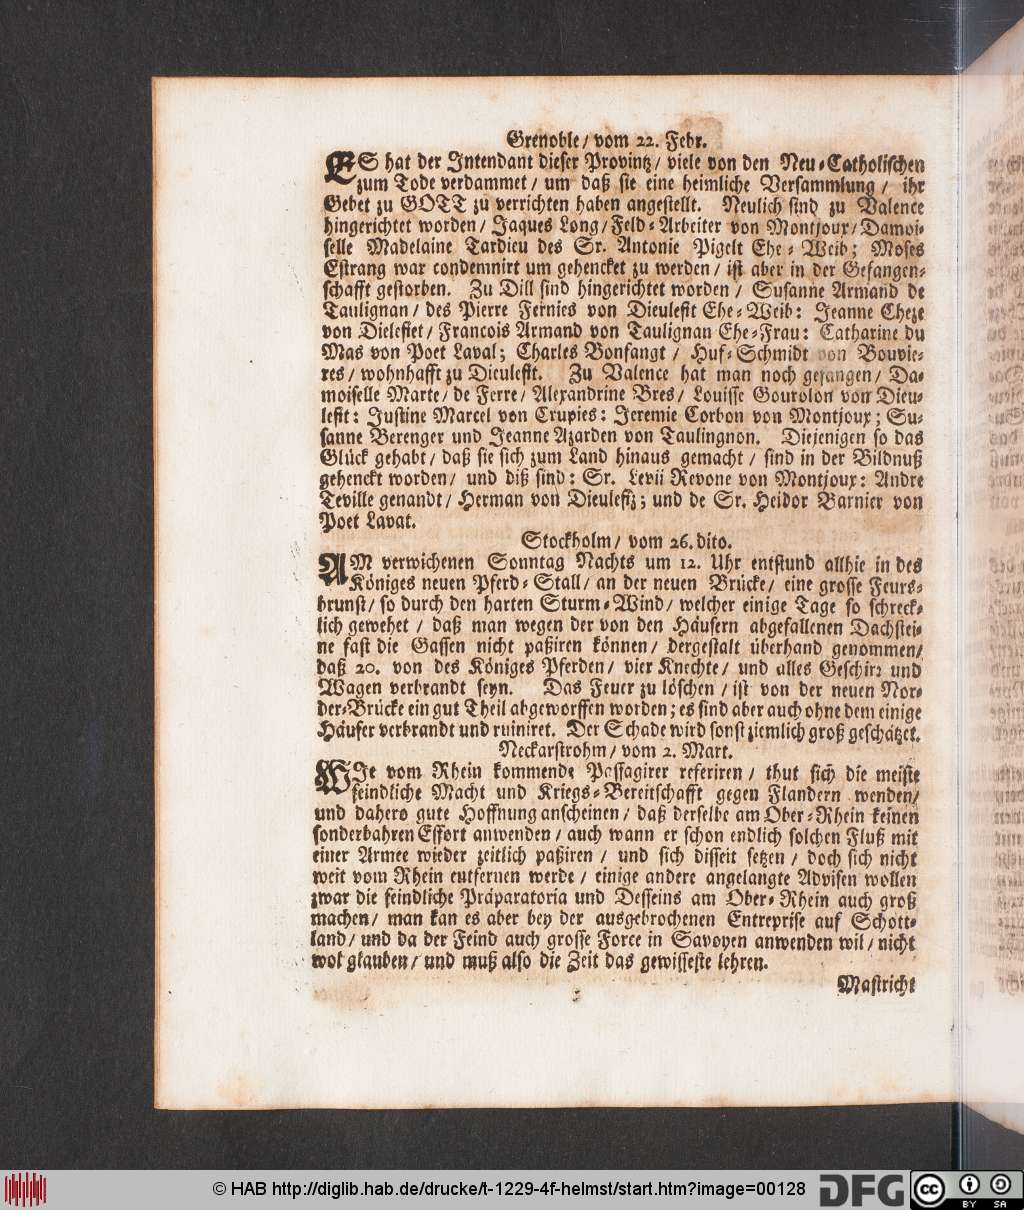 Grenoble / vom 22. Febr.
ES hat der Intendant dieser Provintz / viele von den Neu-Catholischen
zum Tode verdammet / um daß sie eine heimliche Versammlung / ihr
Gebet zu GOTT zu verrichten haben angestellt. Neulich sind zu Valence
hingerichtet worden / Jaques Long / Feld-Arbeiter von Montjoux / Damoi-
selle Madelaine Tardieu des Sr. Antonie Pigelt Ehe-Weib; Moses
Estrang war condemnirt um gehencket zu werden / ist aber in der Gefangen-
schafft gestorben. Zu Dill sind hingerichtet worden / Susanne Armand de
Taulignan / des Pierre Fernies von Dieulefit Ehe-Weib: Jeanne Cheze
von Dielefiet / Francois Armand von Taulignan Ehe-Frau: Catharine du
Mas von Poet Laval; Charles Bonfangt / Huf-Schmidt von Bouvie-
res / wohnhafft zu Dieulefit. Zu Valence hat man noch gefangen / Da-
moiselle Marte / de Ferre / Alexandrine Bres / Louisse Gourolon von Dieu-
lefit: Justine Marcel von Crupies: Jeremie Corbon von Montjoux; Su-
sanne Berenger und Jeanne Azarden von Taulingnon. Diejenigen so das
Glück gehabt / daß sie sich zum Land hinaus gemacht / sind in der Bildnuß
gehenckt worden / und diß sind: Sr. Levii Revone von Montjoux: Andre
Teville genandt / Herman von Dieulefiz; und de Sr. Heidor Barnier von
Poet Lavat.
Stockholm / vom 26. dito.
AM verwichenen Sonntag Nachts um 12. Uhr entstund allhie in des
Königes neuen Pferd-Stall / an der neuen Brücke / eine grosse Feurs-
brunst / so durch den harten Sturm-Wind / welcher einige Tage so schreck-
lich gewehet / daß man wegen der von den Häusern abgefallenen Dachstei-
ne fast die Gassen nicht paßiren können / dergestalt überhand genommen /
daß 20. von des Königes Pferden / vier Knechte / und alles Geschirr und
Wagen verbrandt seyn. Das Feuer zu löschen / ist von der neuen Nor-
der-Brücke ein gut Theil abgeworffen worden; es sind aber auch ohne dem einige
Häuser verbrandt und ruiniret. Der Schade wird sonst ziemlich groß geschätzet.
Neckarstrohm / vom 2. Mart.
WIe vom Rhein kommende Passagirer referiren / thut sich die meiste
feindliche Macht und Kriegs-Bereitschafft gegen Flandern wenden /
und dahero gute Hoffnung anscheinen / daß derselbe am Ober-Rhein keinen
sonderbahren Effort anwenden / auch wann er schon endlich solchen Fluß mit
einer Armee wieder zeitlich paßiren / und sich disseit setzen / doch sich nicht
weit vom Rhein entfernen werde / einige andere angelangte Advisen wollen
zwar die feindliche Präparatoria und Desseins am Ober-Rhein auch groß
machen / man kan es aber bey der ausgebrochenen Entreprise auf Schott-
land / und da der Feind auch grosse Force in Savoyen anwenden wil / nicht
wol glauben / und muß also die Zeit das gewisseste lehren.
Mastricht
© HAB http://diglib.hab.de/drucke/t-1229-4f-helmst/start.htm?image=00128
DFG
cc BY SA